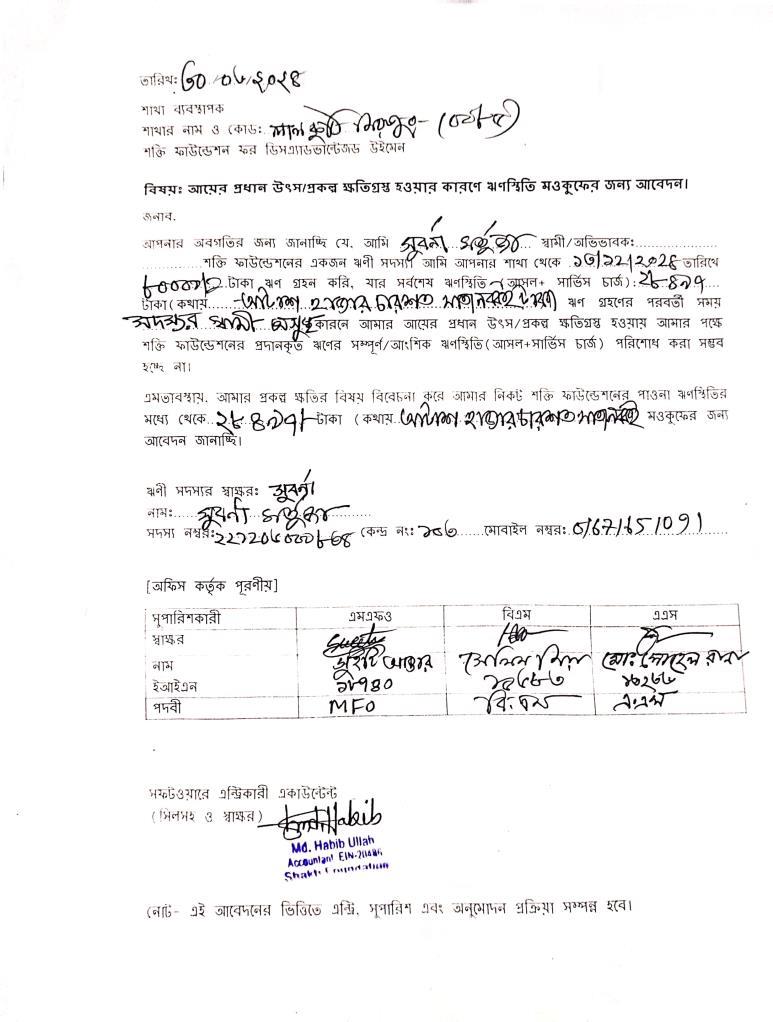 তারিখ: ৩০/০৬/২০২৪
শাখা ব্যবস্থাপক
শাখার নাম ও কোড: মিরপুর-
শক্তি ফাউন্ডেশন ফর ডিসএ্যাডভান্টেজড উইমেন
বিষয়: আয়ের প্রধান উৎস/প্রকল্প ক্ষতিগ্রস্থ হওয়ার কারণে ঋণস্থিতি মওকুফের জন্য আবেদন।
জনাব,
আপনার অবগতির জন্য জানাচ্ছি যে, আমি সুবর্না স্বামী/অভিভাবক:
শক্তি ফাউন্ডেশনের একজন ঋণী সদস্য। আমি আপনার শাখা থেকে তারিখে
টাকা ঋণ গ্রহন করি, যার সর্বশেষ ঋণস্থিতি (আসল+ সার্ভিস চার্জ): ২৮৪৯৭
টাকা (কথায় আটাশ হাজার চারশত সাতানব্বই টাকা) ঋণ গ্রহণের পরবর্তী সময়
সদস্যর স্বামী অসুস্থ কারনে আমার আয়ের প্রধান উৎস/প্রকল্প ক্ষতিগ্রস্থ হওয়ায় আমার পক্ষে
শক্তি ফাউন্ডেশনের প্রদানকৃত ঋণের সম্পূর্ণ/আংশিক ঋণস্থিতি(আসল+সার্ভিস চার্জ) পরিশোধ করা সম্ভব
হচ্ছে না।
এমতাবস্থায়, আমার প্রকল্প ক্ষতির বিষয় বিবেচনা করে আমার নিকট শক্তি ফাউন্ডেশনের পাওনা ঋণস্থিতির
মধ্যে থেকে ২৮৪৯৭/- টাকা (কথায় আটাশ হাজার চারশত সাতানব্বই মওকুফের জন্য
আবেদন জানাচ্ছি।
ঋণী সদস্যর স্বাক্ষর: সুবর্না
নাম: সুবর্না
সদস্য নম্বর: কেন্দ্র নং: মোবাইল নম্বর: 01671651091
[অফিস কর্তৃক পূরণীয়]
সুপারিশকারী এমএফও বিএম এএস
স্বাক্ষর
নাম আক্তার সেলিম মিয়া মো: সোহেল রানা
ইআইএন
পদবী MFO বি:এম এ:এস
সফটওয়ারে এন্ট্রিকারী একাউন্টেন্ট
(সিলসহ ও স্বাক্ষর) Habib
Md. Habib Ullah
Accountant EIN-
Shakti Foundation
নোট- এই আবেদনের ভিত্তিতে এন্ট্রি, সুপারিশ এবং অনুমোদন প্রক্রিয়া সম্পন্ন হবে।